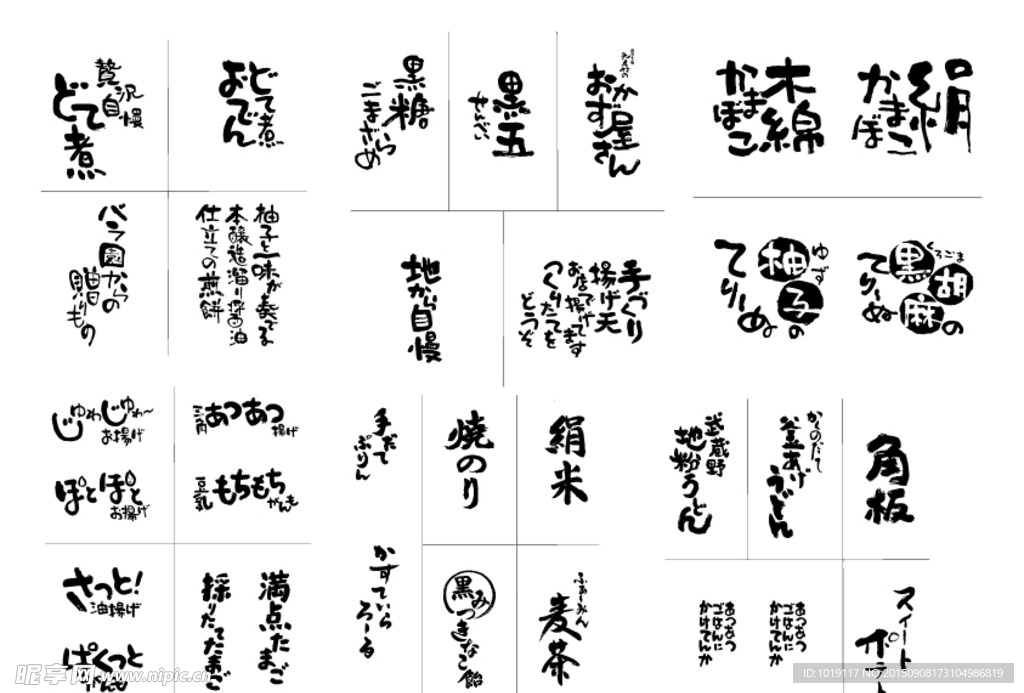 贅沢
自慢
どて煮
どて煮
おでん
黒糖
ごまざらめ
黒五
せんべい
おかず屋さん
木綿
かまぼこ
絹
かまぼこ
バラ園からの
贈りもの
柚子と一味が奏でる
本醸造溜り醤油
仕立ての煎餅
地から自慢
手づくり
揚げ天
お店で揚げてます
つくりたてを
どうぞ
ゆず
柚子の
てりーぬ
くろごま
黒胡麻の
てりーぬ
じゅわじゅわ～
お揚げ
三角
あつあつ
揚げ
ぽとぽと
お揚げ
豆乳
もちもち
がんも
手だて
ぷりん
焼のり
絹米
武蔵野
地粉うどん
かくのだて
釜あげ
うどん
角板
さっと!
油揚げ
ぱくっと
採りたてたまご
満点たまご
かすていら
ろーる
黒みつきなこ飴
ふぁーみん
麦茶
あつあつ
ごはんに
かけてんか
あつあつ
ごはんに
かけてんか
スィート
ポテト
昵享网 www.nipic.cn
ID:1019117 NO:20150908173104986819